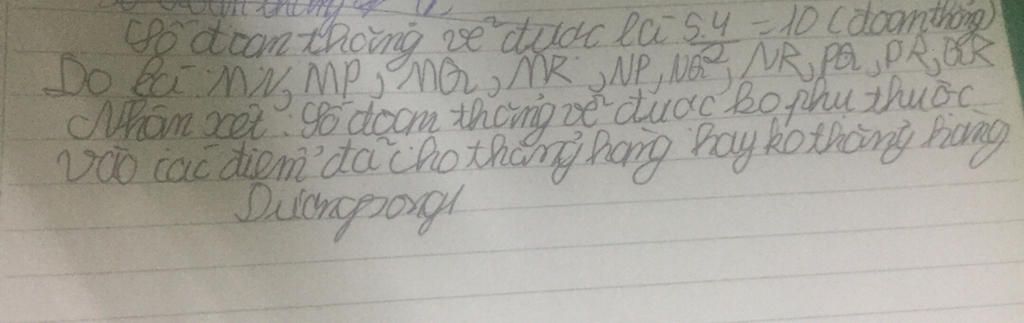 Số đoạn thẳng vẽ được là 5.4/2 = 10 (đoạn thẳng)
Đó là: MN, MP, MQ, MR, NP, NQ, NR, PQ, PR, QR
Nhận xét: Số đoạn thẳng vẽ được ko phụ thuộc
vào các điểm đã cho thẳng hàng hay ko thẳng hàng